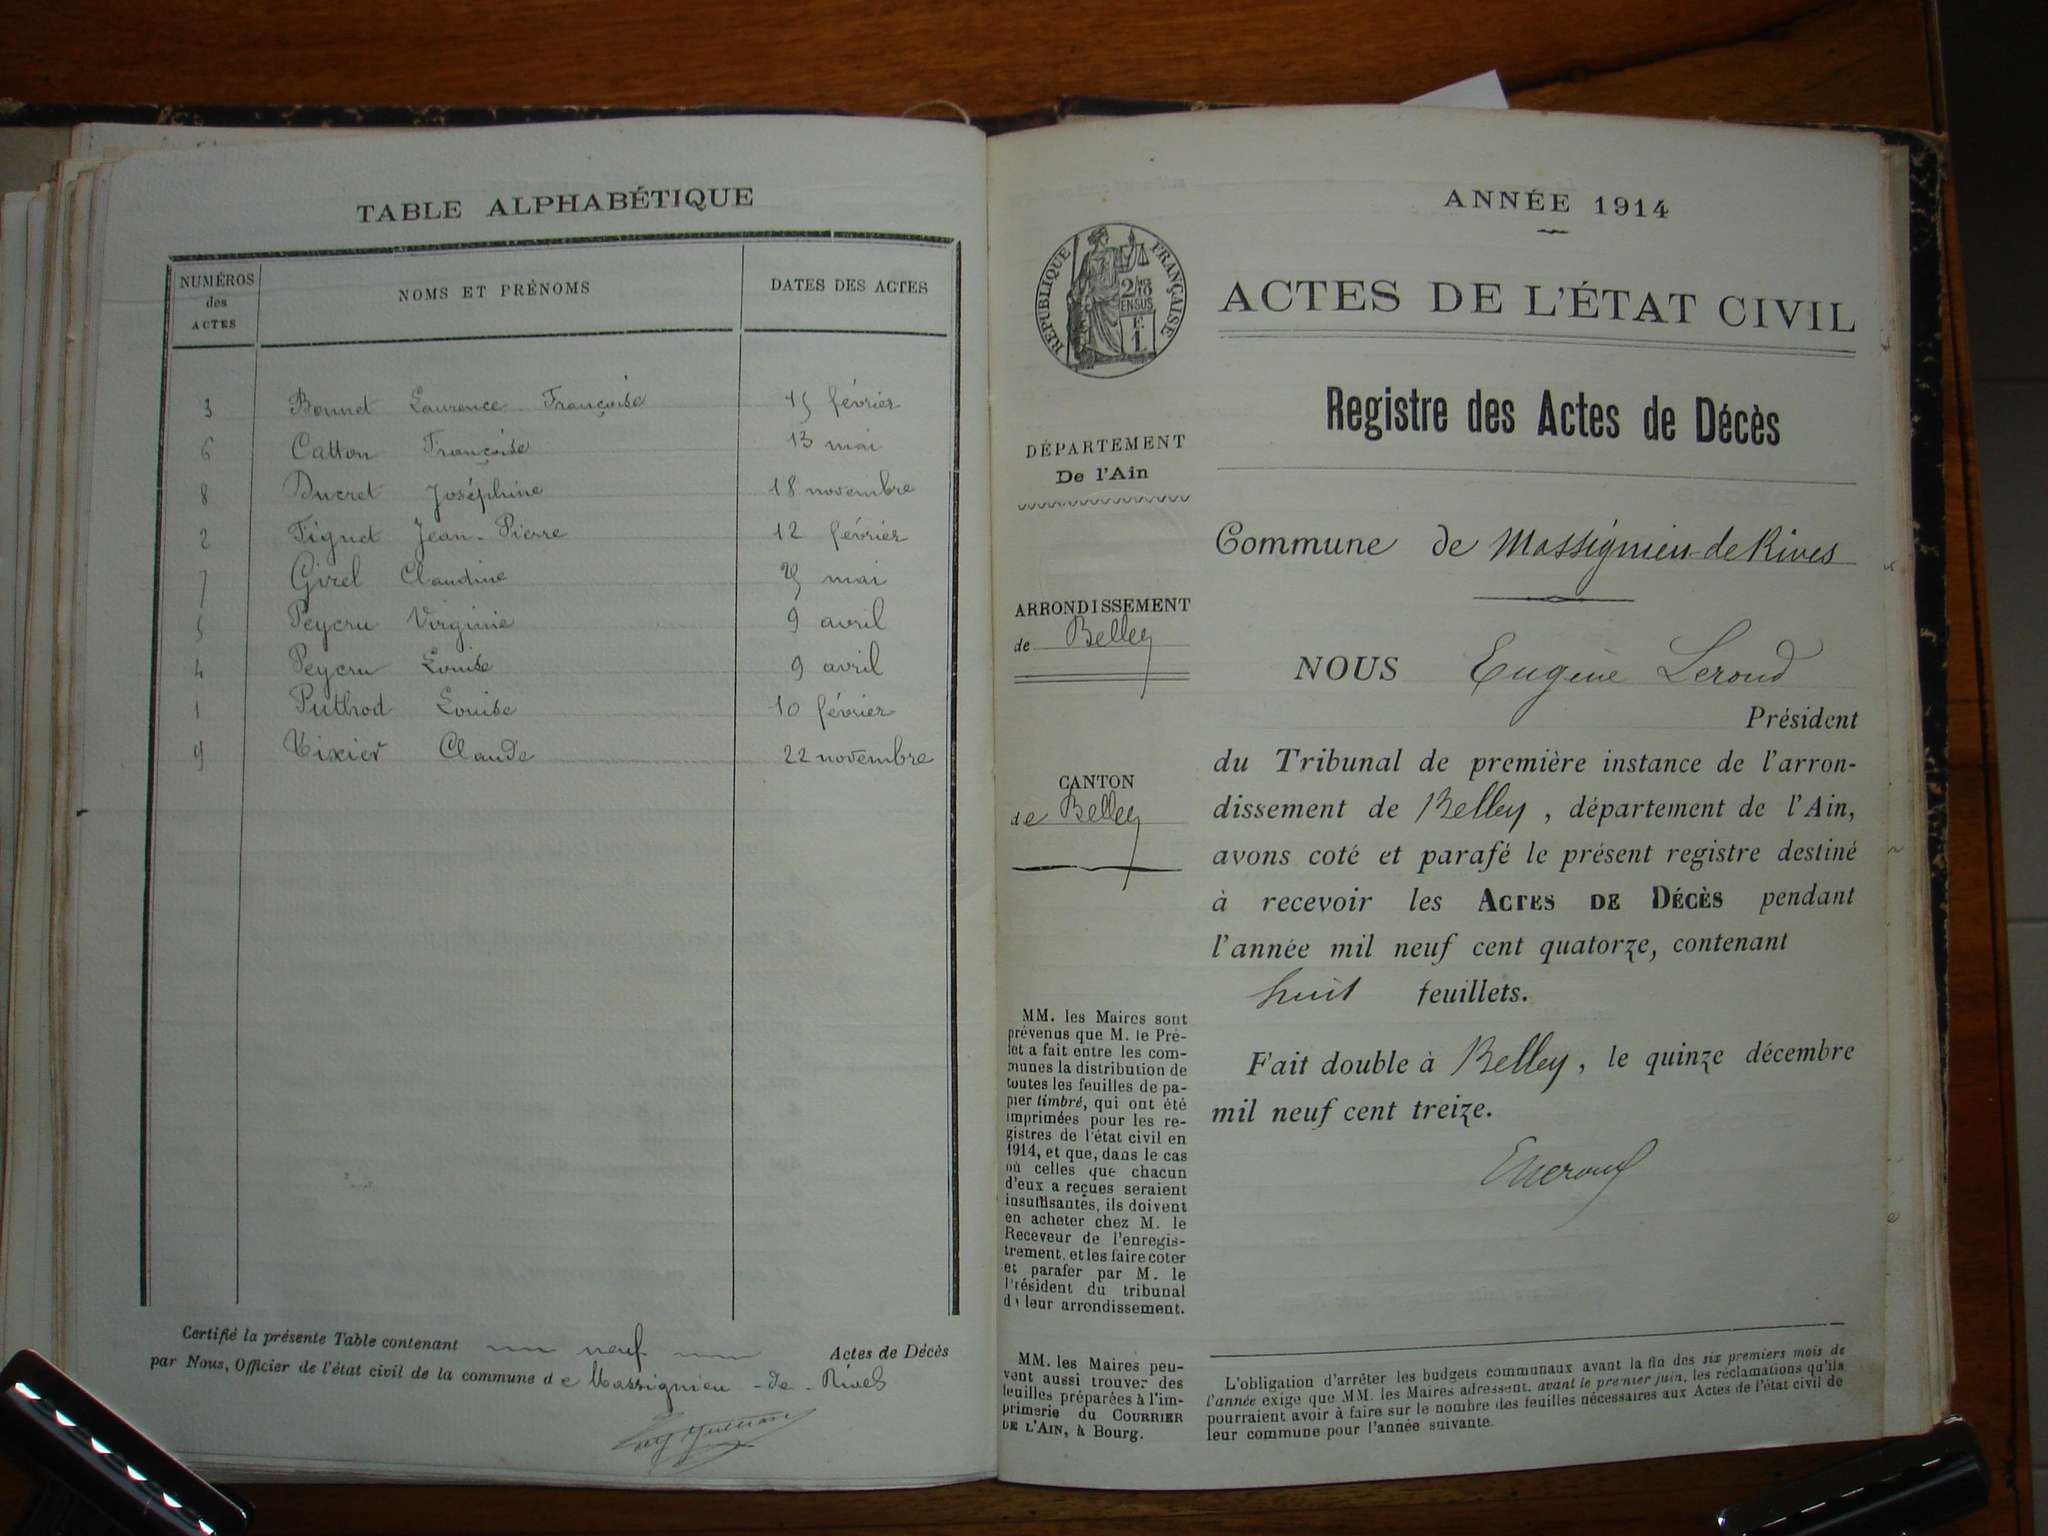 TABLE ALPHABÉTIQUE
NUMÉROS des ACTES
NOMS ET PRÉNOMS
DATES DES ACTES
3 Bonnet Laurence Françoise 15 février
6 Catton Françoise 13 mai
8 Ducret Joséphine 18 novembre
2 Fignet Jean-Pierre 12 février
7 Girel Claudine mai
5 Peycru Virginie 9 avril
4 Peycru Louise 9 avril
1 Puthod Louise 10 février
9 Vixier Claude 22 novembre
Certifié la présente Table contenant neuf Actes de Décès
par Nous, Officier de l'état civil de la commune de Massignieu-de-Rives
ANNÉE 1914
RÉPUBLIQUE FRANÇAISE
ACTES DE L'ÉTAT CIVIL
Registre des Actes de Décès
DÉPARTEMENT
De l'Ain
Commune de Massignieu-de Rives
ARRONDISSEMENT
de Belley
NOUS Eugène Lerond
Président
du Tribunal de première instance de l'arron-
dissement de Belley, département de l'Ain,
avons coté et parafé le présent registre destiné
à recevoir les ACTES DE DÉCÈS pendant
l'année mil neuf cent quatorze, contenant
huit feuillets.
Fait double à Belley, le quinze décembre
mil neuf cent treize.
CANTON
de Belley
MM. les Maires sont
prévenus que M. le Pré-
fet a fait entre les com-
munes la distribution de
toutes les feuilles de pa-
pier timbré, qui ont été
imprimées pour les re-
gistres de l'état civil en
1914, et que, dans le cas
où celles que chacun
d'eux a reçues seraient
insuffisantes, ils doivent
en acheter chez M. le
Receveur de l'enregis-
trement, et les faire coter
et parafer par M. le
Président du tribunal
de leur arrondissement.
MM. les Maires peu-
vent aussi trouver des
feuilles préparées à l'im-
primerie du COURRIER
DE L'AIN, à Bourg.
L'obligation d'arrêter les budgets communaux avant la fin des six premiers mois de
l'année exige que MM. les Maires adressent, avant le premier juin, les réclamations qu'ils
pourraient avoir à faire sur le nombre des feuilles nécessaires aux Actes de l'état civil de
leur commune pour l'année suivante.